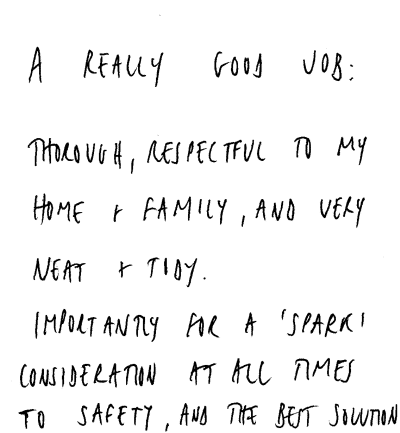 A REALLY GOOD JOB:
THOROUGH, RESPECTFUL TO MY
HOME + FAMILY, AND VERY
NEAT + TIDY.
IMPORTANTLY FOR A 'SPARK'
CONSIDERATION AT ALL TIMES
TO SAFETY, AND THE BEST SOLUTION